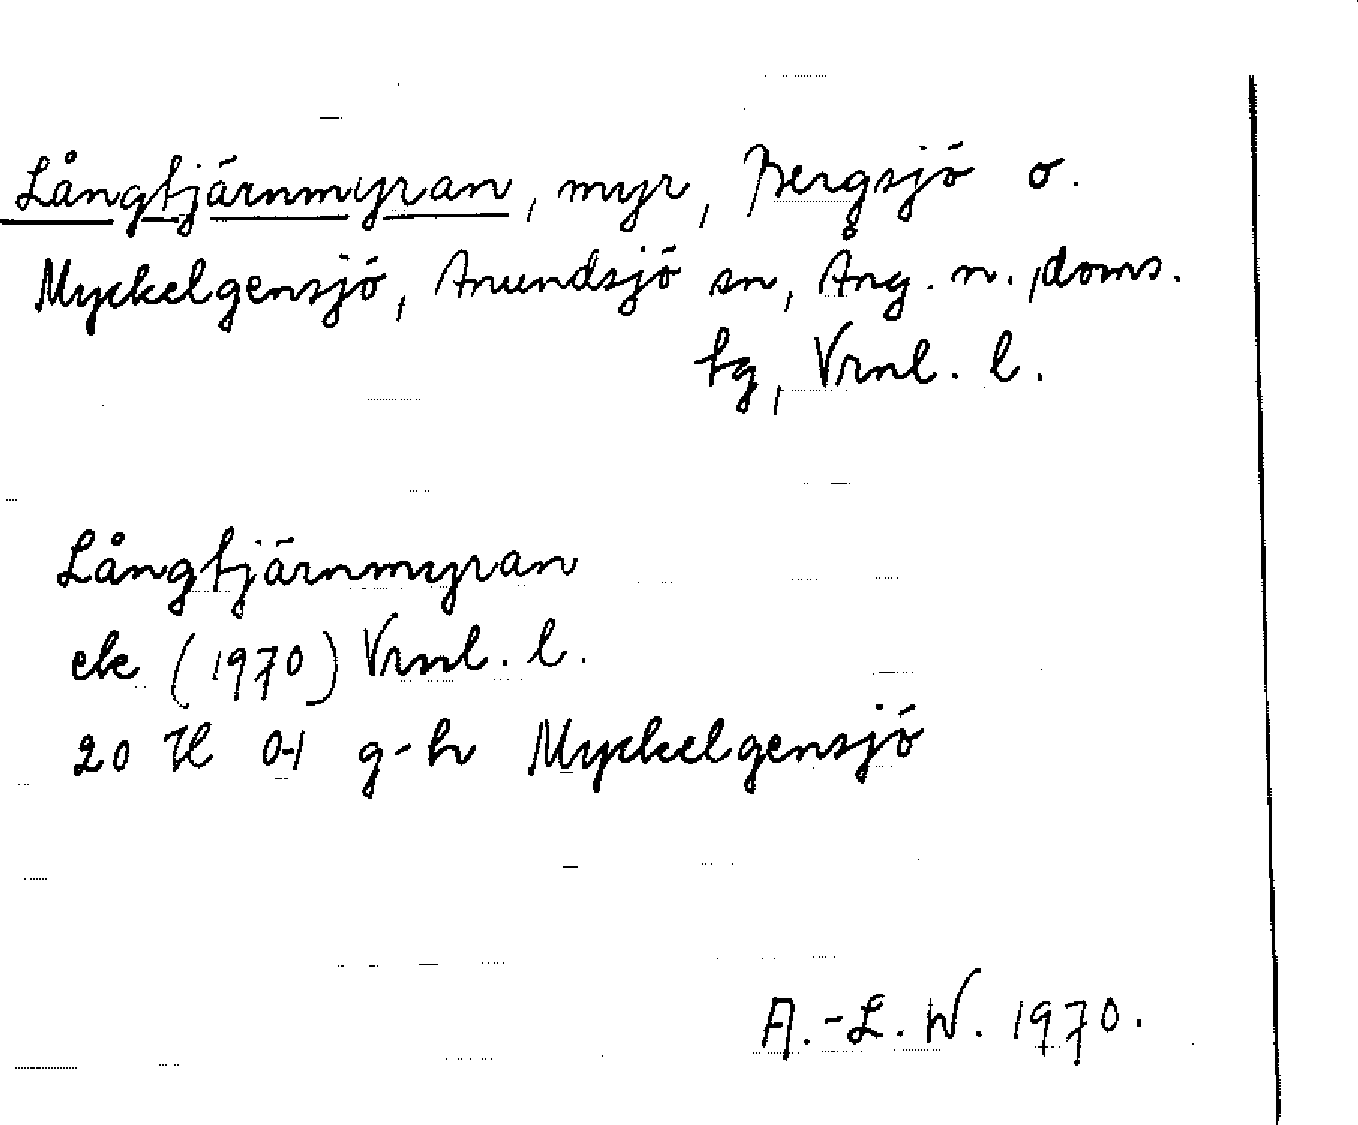 Långtjärnmyran, myr, Bergsjö o.
Myckelgensjö, Anundsjö sn, Ång. n., doms.
tg, Vrnl. l.
Långtjärnmyran
ek (1970) Vrnl. l.
20 H 0-1 g-h Myckelgensjö
A.-L. W. 1970.